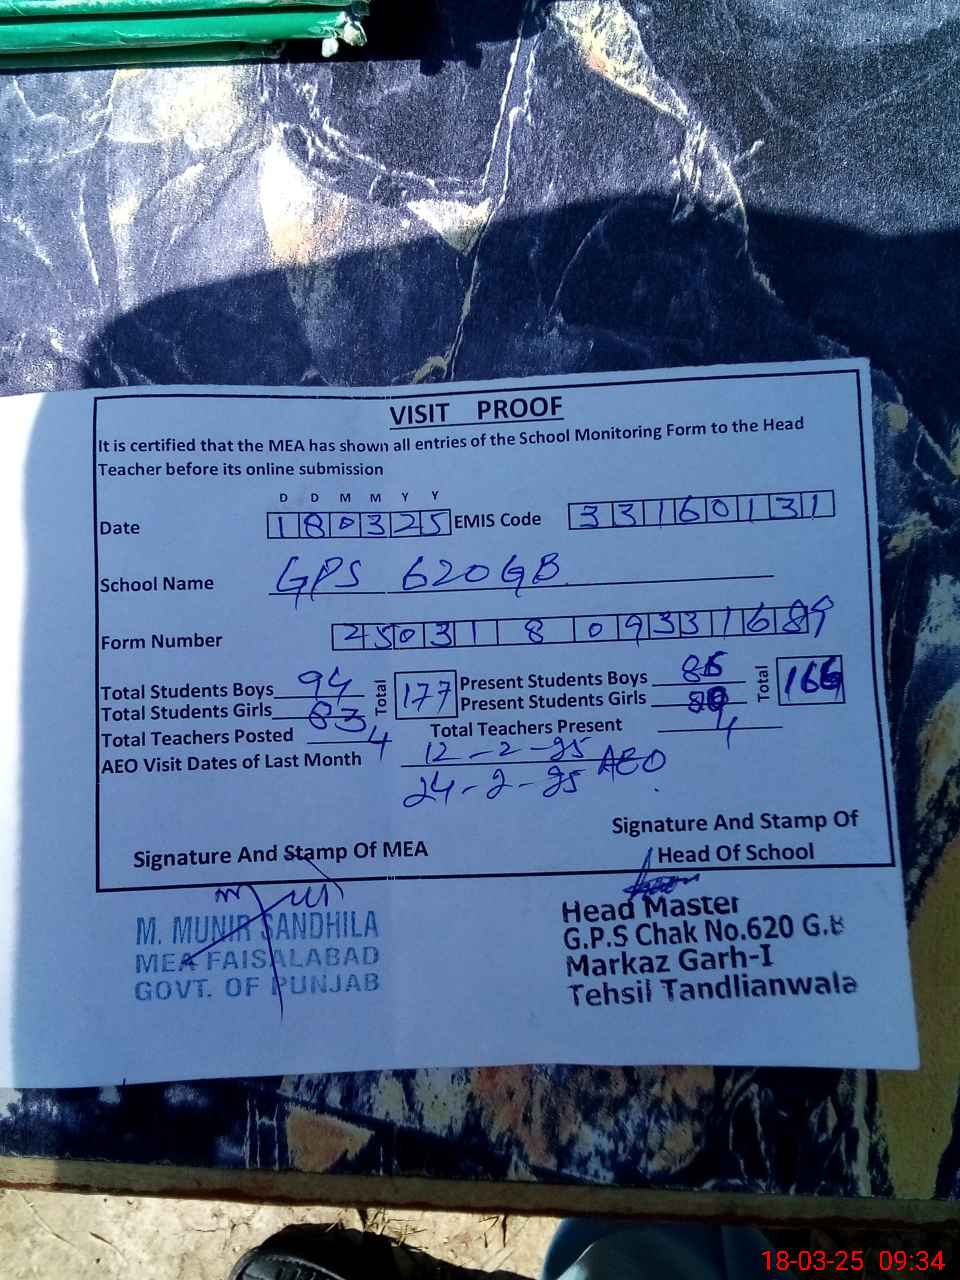 VISIT PROOF
It is certified that the MEA has shown all entries of the School Monitoring Form to the Head
Teacher before its online submission
D D M M Y Y
Date 180325 EMIS Code 33160131
School Name GPS 620 GB
Form Number 25031809331689
Total Students Boys 94 Total 177 Present Students Boys Total 166
Total Students Girls 83 Present Students Girls
Total Teachers Posted 4 Total Teachers Present 4
AEO Visit Dates of Last Month 12-2-25
24-2-25 AEO
Signature And Stamp Of MEA
Signature And Stamp Of
Head Of School
M. MUNIR SANDHILA
MEA FAISALABAD
GOVT. OF PUNJAB
Head Master
G.P.S Chak No.620 G.B
Markaz Garh-I
Tehsil Tandlianwala
18-03-25 09:34